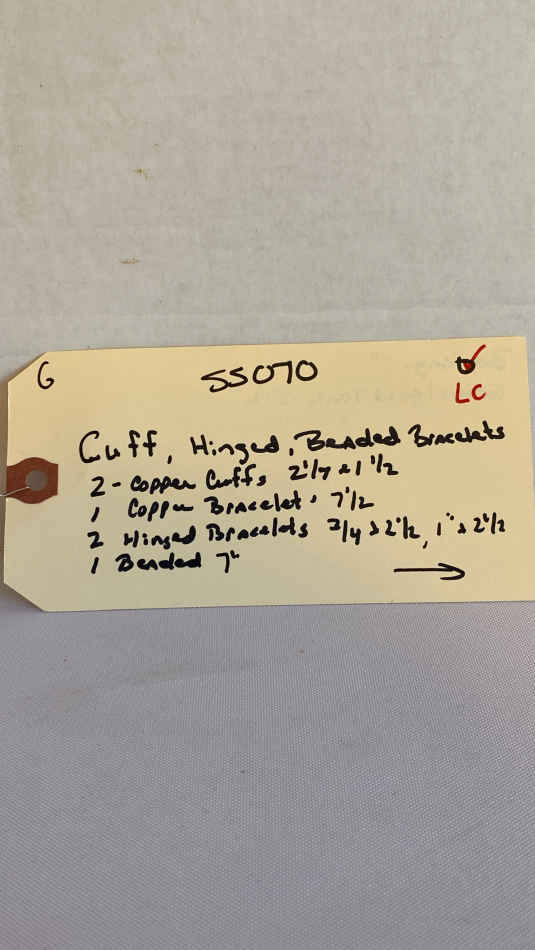 G
SS070
LC
Cuff, Hinged, Beaded Bracelets
2 - Copper Cuffs 2 1/4 x 1 1/2
1 Copper Bracelet 7 1/2
2 Hinged Bracelets 3/4 x 2 1/2, 1" x 2 1/2
1 Beaded 7"